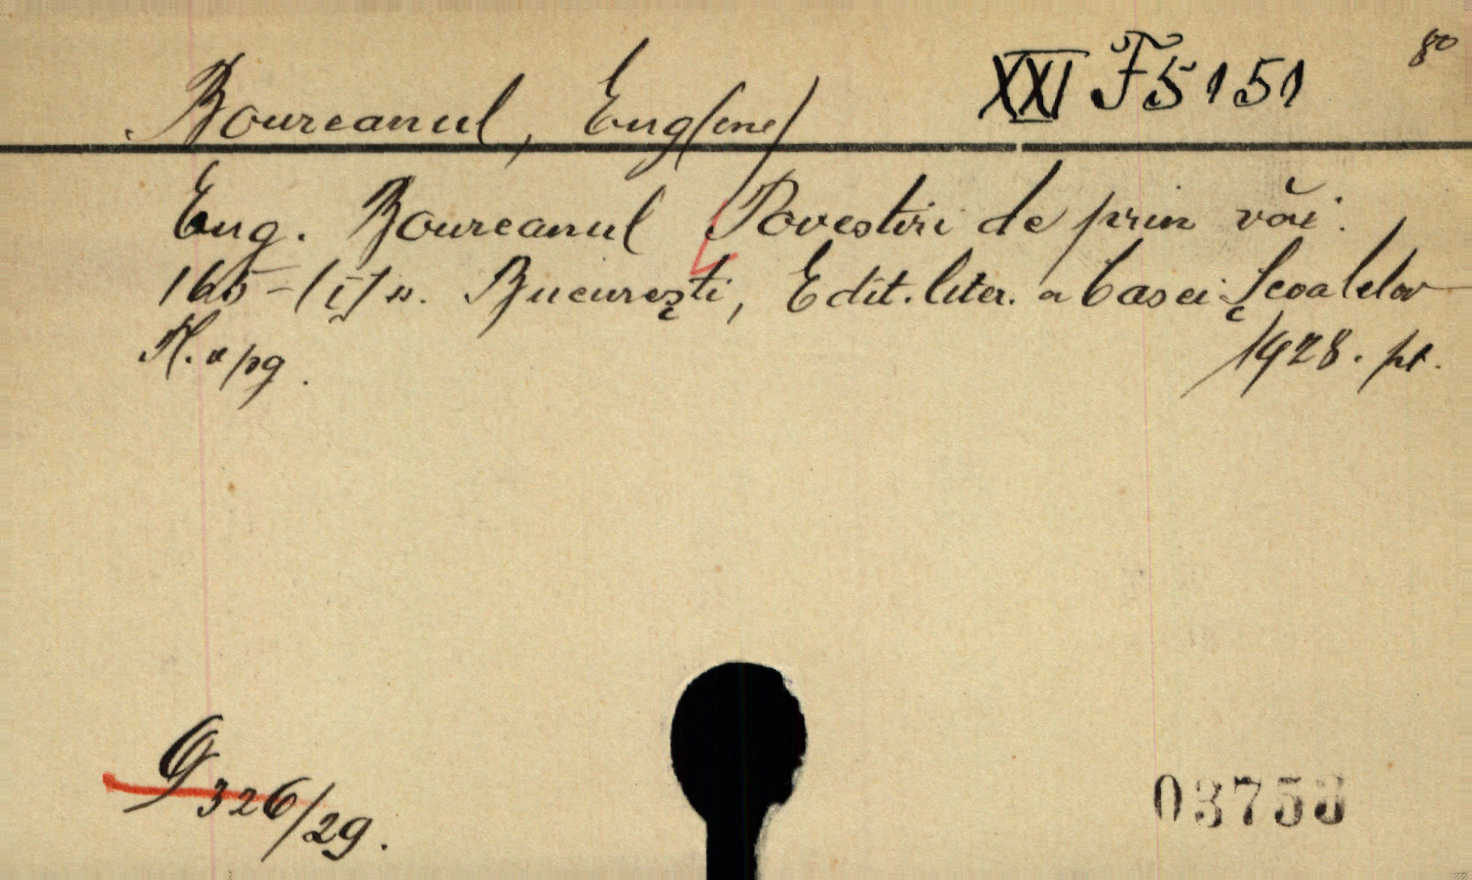 Boureanul, Eug(ene) XXI F5151 80
Eug. Boureanul Povestiri de prin văi.
165-(1) n. București, Edit. liter. a Casei Școalelor
1928. pt.
G 326/29.
03753